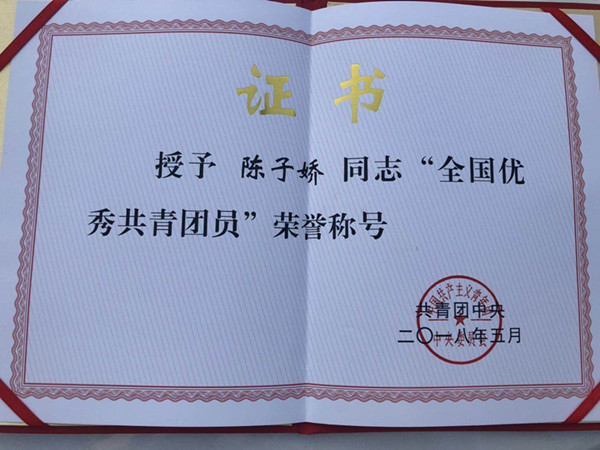 证书
授予 陈子娇 同志“全国优
秀共青团员”荣誉称号
共青团中央
二〇一八年五月
中国共产主义青年团
中央委员会